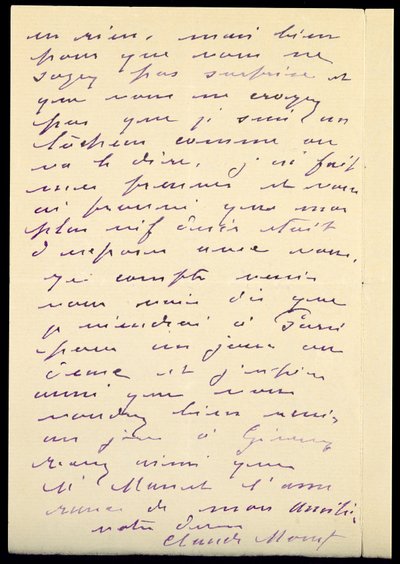 en rien, mais bien
pour que vous ne
soyez pas surprise et
que vous ne croyez
pas que je suis un
lâcheur comme on
va le dire. j'ai fait
mes preuves et vous
ai prouvé que mon
plus vif désir était
d'exposer avec vous.
je compte venir
vous voir dès que
je viendrai à Paris
pour un jour ou
deux et j'espère
aussi que vous
voudrez bien venir
un jour à Giverny
ainsi que
Mr Manet l'assu
rance de mon amitié.
votre dévoué
Claude Monet